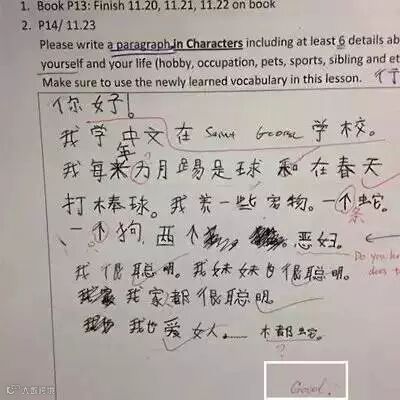 1. Book P13: Finish 11.20, 11.21, 11.22 on book
2. P14/ 11.23
Please write a paragraph in Characters including at least 6 details ab
yourself and your life (hobby, occupation, pets, sports, sibling and et
Make sure to use the newly learned vocabulary in this lesson.
你好!
我学中文在 Saint George 学校。
年
我每来个月踢是球和在春天
打棒球。我养一些宠物。一个蛇。
条
一个狗,两个 恶妇。
Do you k
does t
我很聪明。我妹妹也很聪明。
我家都很聪明。
我也爱女人……
都蛇。
?
Good!
大数跨境